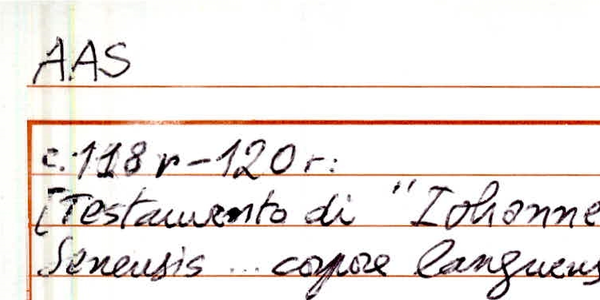 AAS
c. 118r-120r:
[Testamento di "Iohanne
Senensis ... corpore languens